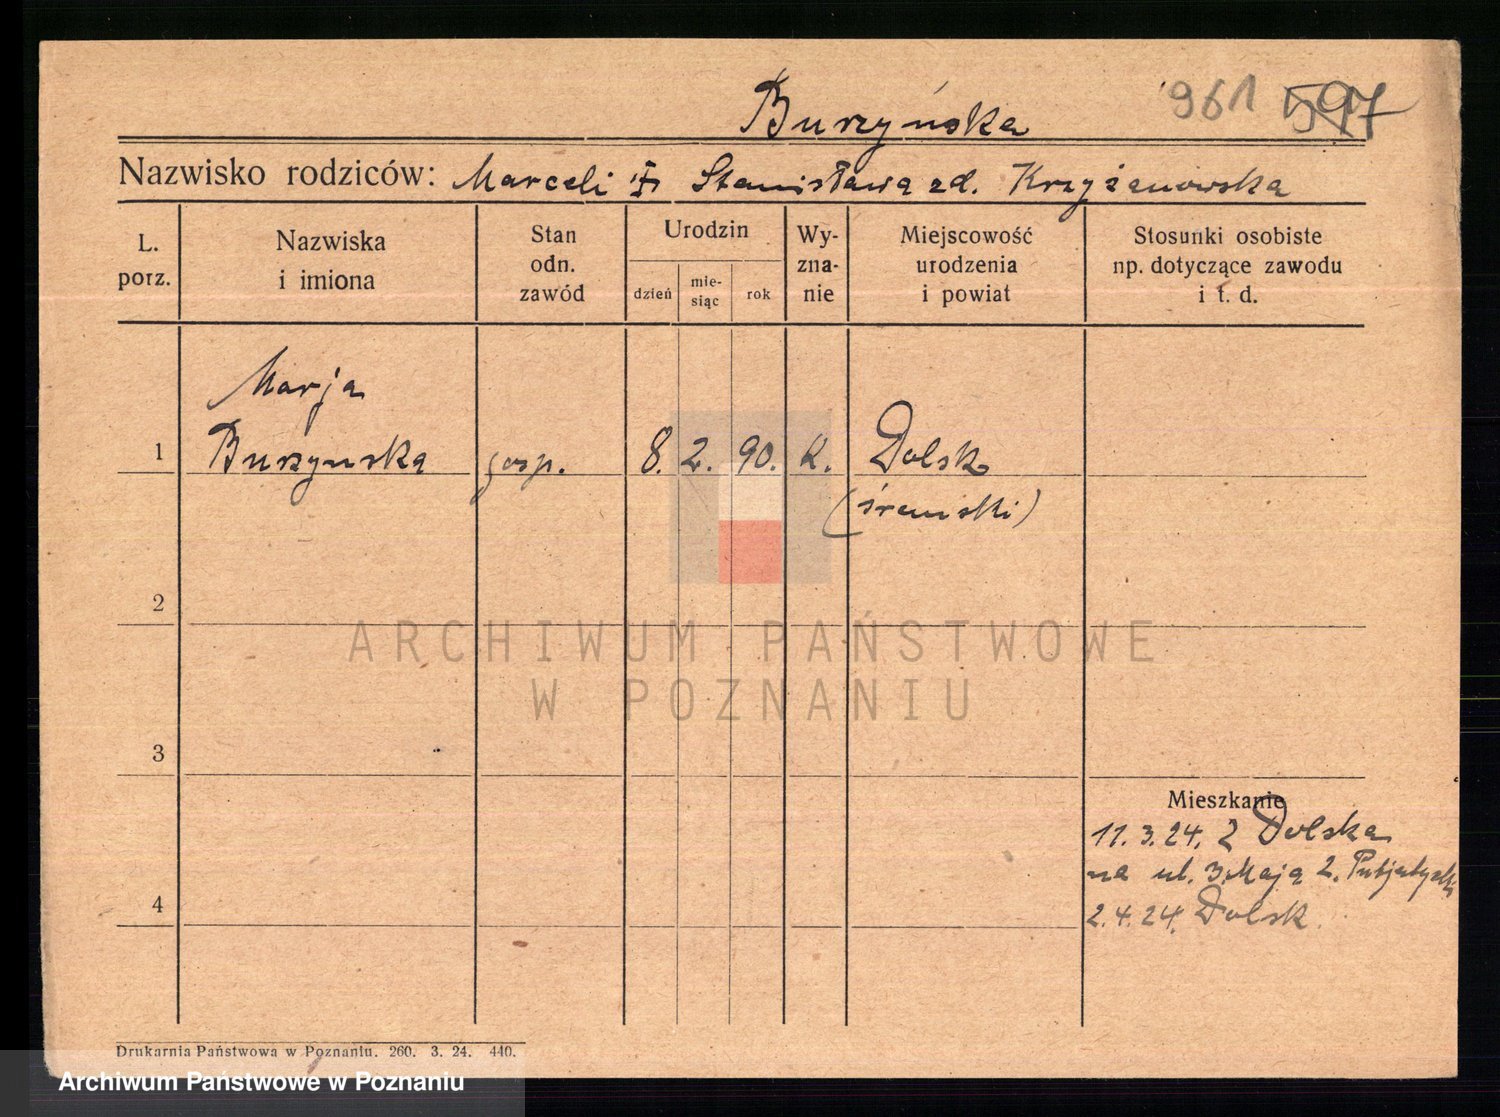 Burzyńska
961 597
Nazwisko rodziców: Marceli i Stanisława zd. Krzyżanowska
L. porz.
Nazwiska i imiona
Stan odn. zawód
Urodzin
dzień
mie-
siąc
rok
Wy-
zna-
nie
Miejscowość urodzenia i powiat
Stosunki osobiste
np. dotyczące zawodu
i t. d.
Marja
1 Burzynska gosp. 8. 2. 90. k. Dolsk
(śremski)
2
3
4
Mieszkanie
11.3.24. z Dolska
na ul. 3. Maja 2.
2.4.24. Dolsk.
ARCHIWUM PAŃSTWOWE
W POZNANIU
Drukarnia Państwowa w Poznaniu. 260. 3. 24. 440.
Archiwum Państwowe w Poznaniu